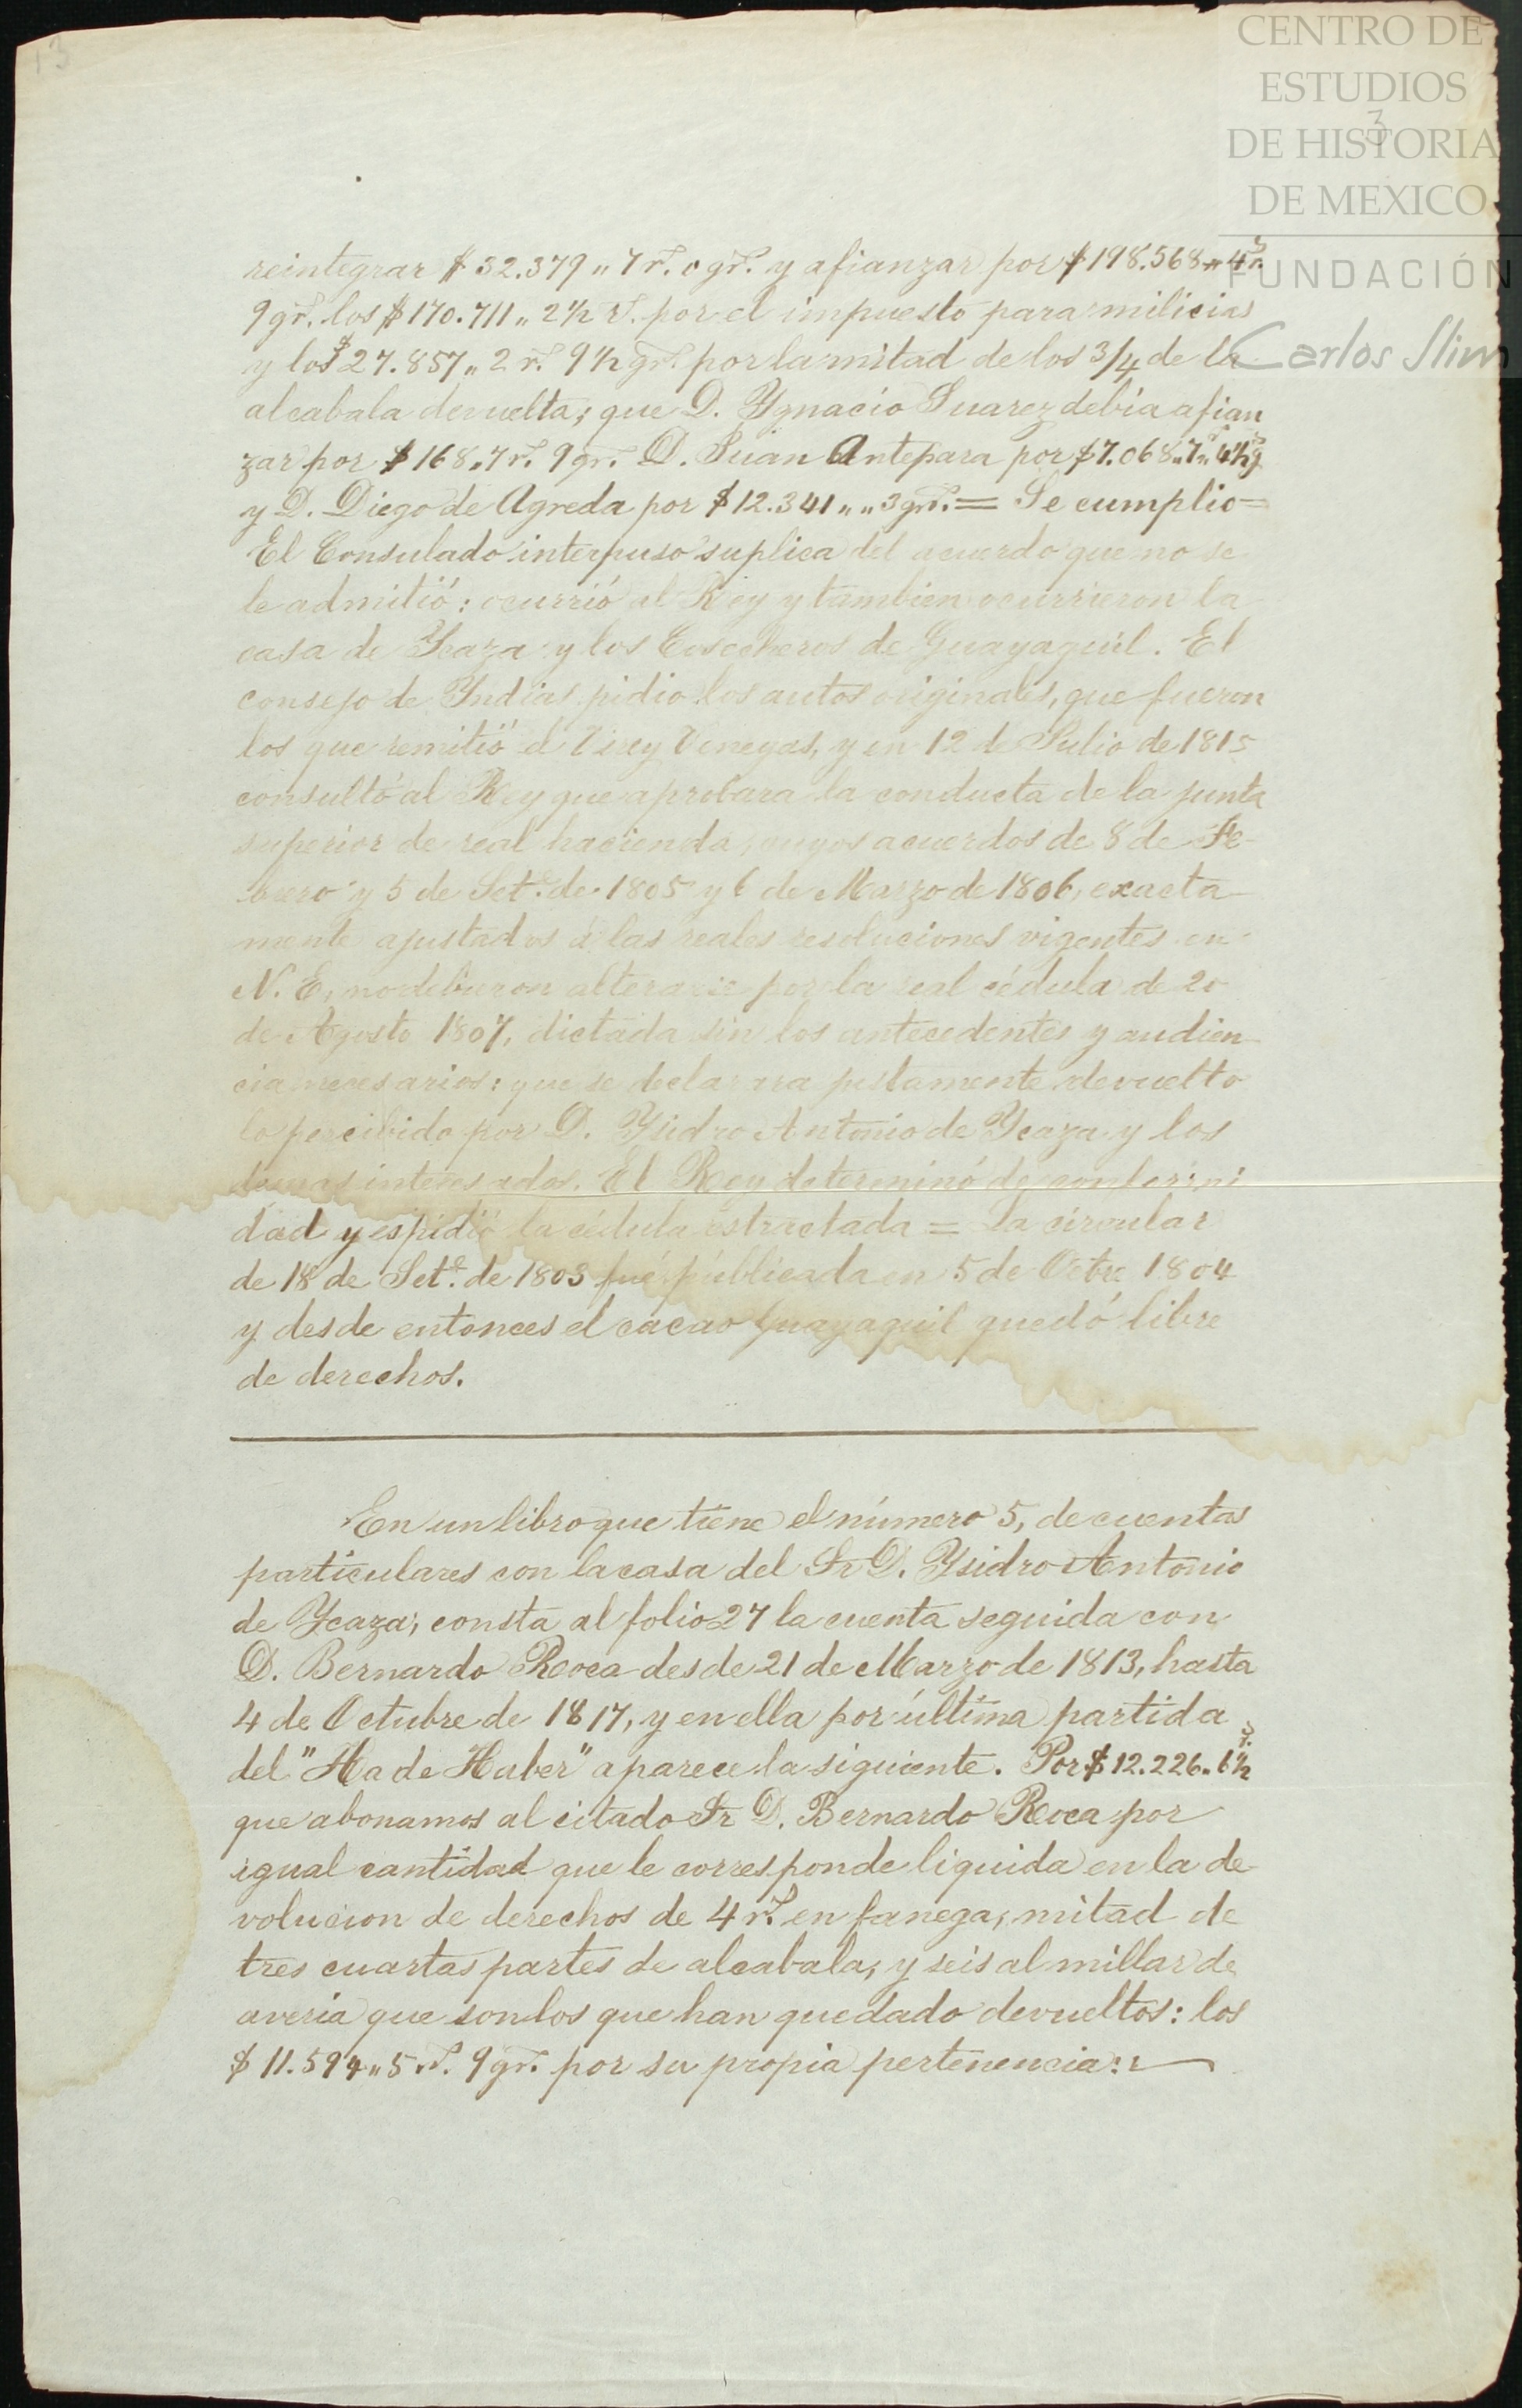 13
CENTRO DE
ESTUDIOS
3
DE HISTORIA
DE MEXICO
FUNDACIÓN
Carlos Slim
reintegrar $32.379 „ 7 rs. 0 grs. y afianzar por $198.568 „ 4 rs.
9 grs. los $170.711 „ 2 1/2 rs. por el impuesto para milicias
y los $27.857 „ 2 rs. 9 1/2 grs. por la mitad de los 3/4 de la
alcabala devuelta; que D. Ygnacio Suarez debia afian
zar por $168 „ 7 rs. 9 grs. D. Juan Antepara por $7.068 „ 7 rs „ 4 1/2 gs
y D. Diego de Agreda por $12.341 „ „ 3 grs. = Se cumplio =
El Consulado interpuso suplica del acuerdo que no se
le admitió: ocurrió al Rey y tambien ocurrieron la
casa de Ycaza y los Cosecheros de Guayaquil. El
consejo de Yndias pidio los autos originales, que fueron
los que remitió el Virey Venegas, y en 12 de Julio de 1815
consultó al Rey que aprobara la conducta de la junta
superior de real hacienda, cuyos acuerdos de 8 de Fe-
brero y 5 de Set.e de 1805 y 6 de Marzo de 1806, exacta-
mente ajustados á las reales resoluciones vigentes en
N. E, no debieron alterarse por la real cédula de 20
de Agosto 1807, dictada sin los antecedentes y audien-
cia necesarios: que se declarara justamente devuelto
lo percibido por D. Ysidro Antonio de Ycaza y los
demas interesados. El Rey determinó de conformi
dad y espidió la cédula estractada = La circular
de 18 de Set.e de 1803 fué públicada en 5 de Octre 1804
y desde entonces el cacao Guayaquil quedó libre
de derechos.
En un libro que tiene el número 5, de cuentas
particulares con la casa del Sr D. Ysidro Antonio
de Ycaza; consta al folio 27 la cuenta seguida con
D. Bernardo Roca desde 21 de Marzo de 1813, hasta
4 de Octubre de 1817, y en ella por última partida
del "Ha de Haber" aparece la siguiente. Por $12.226 „ 6 1/2 rs.
que abonamos al citado Sr D. Bernardo Roca por
igual cantidad que le corresponde liquida en la de-
volucion de derechos de 4 rs. en fanega, mitad de
tres cuartas partes de alcabala, y seis al millar de
averia que son los que han quedado devueltos: los
$11.594 „ 5 rs. 9 grs. por su propia pertenencia: